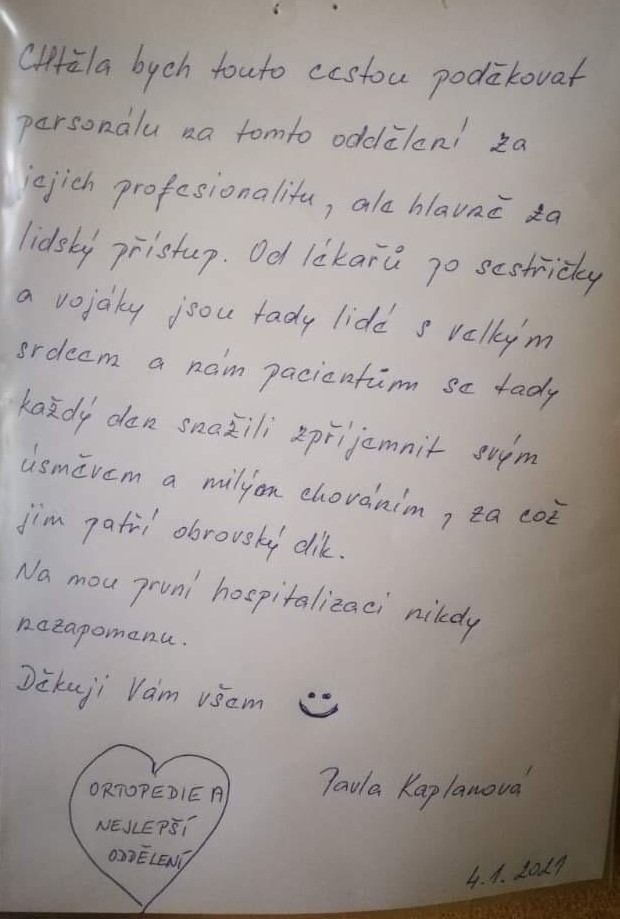 Chtěla bych touto cestou poděkovat
personálu na tomto oddělení za
jejich profesionalitu, ale hlavně za
lidský přístup. Od lékařů po sestřičky
a vojáky jsou tady lidé s velkým
srdcem a nám pacientům se tady
každý den snažili zpříjemnit svým
úsměvem a milým chováním, za což
jim patří obrovský dík.
Na mou první hospitalizaci nikdy
nezapomenu.
Děkuji Vám všem
Pavla Kaplanová
ORTOPEDIE A
NEJLEPŠÍ
ODDĚLENÍ
4.1.2021